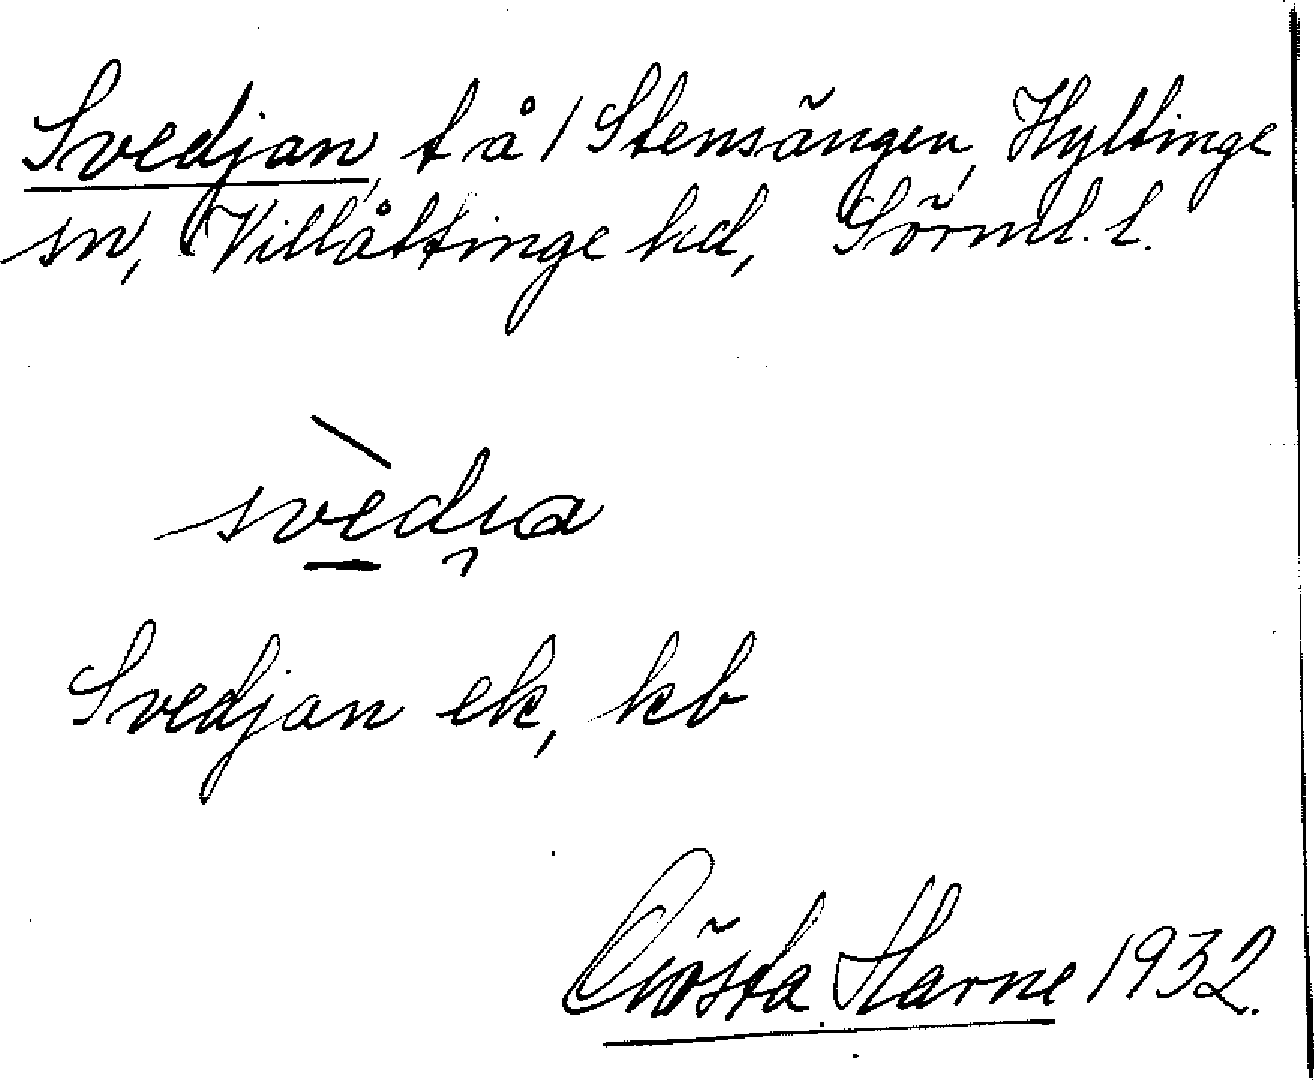 Svedjan, t å / Stensängen, Hyltinge
sn, Villåttinge hd, Sörml. l.
svèdıa
Svedjan ek, kb
Gösta Harne 1932.